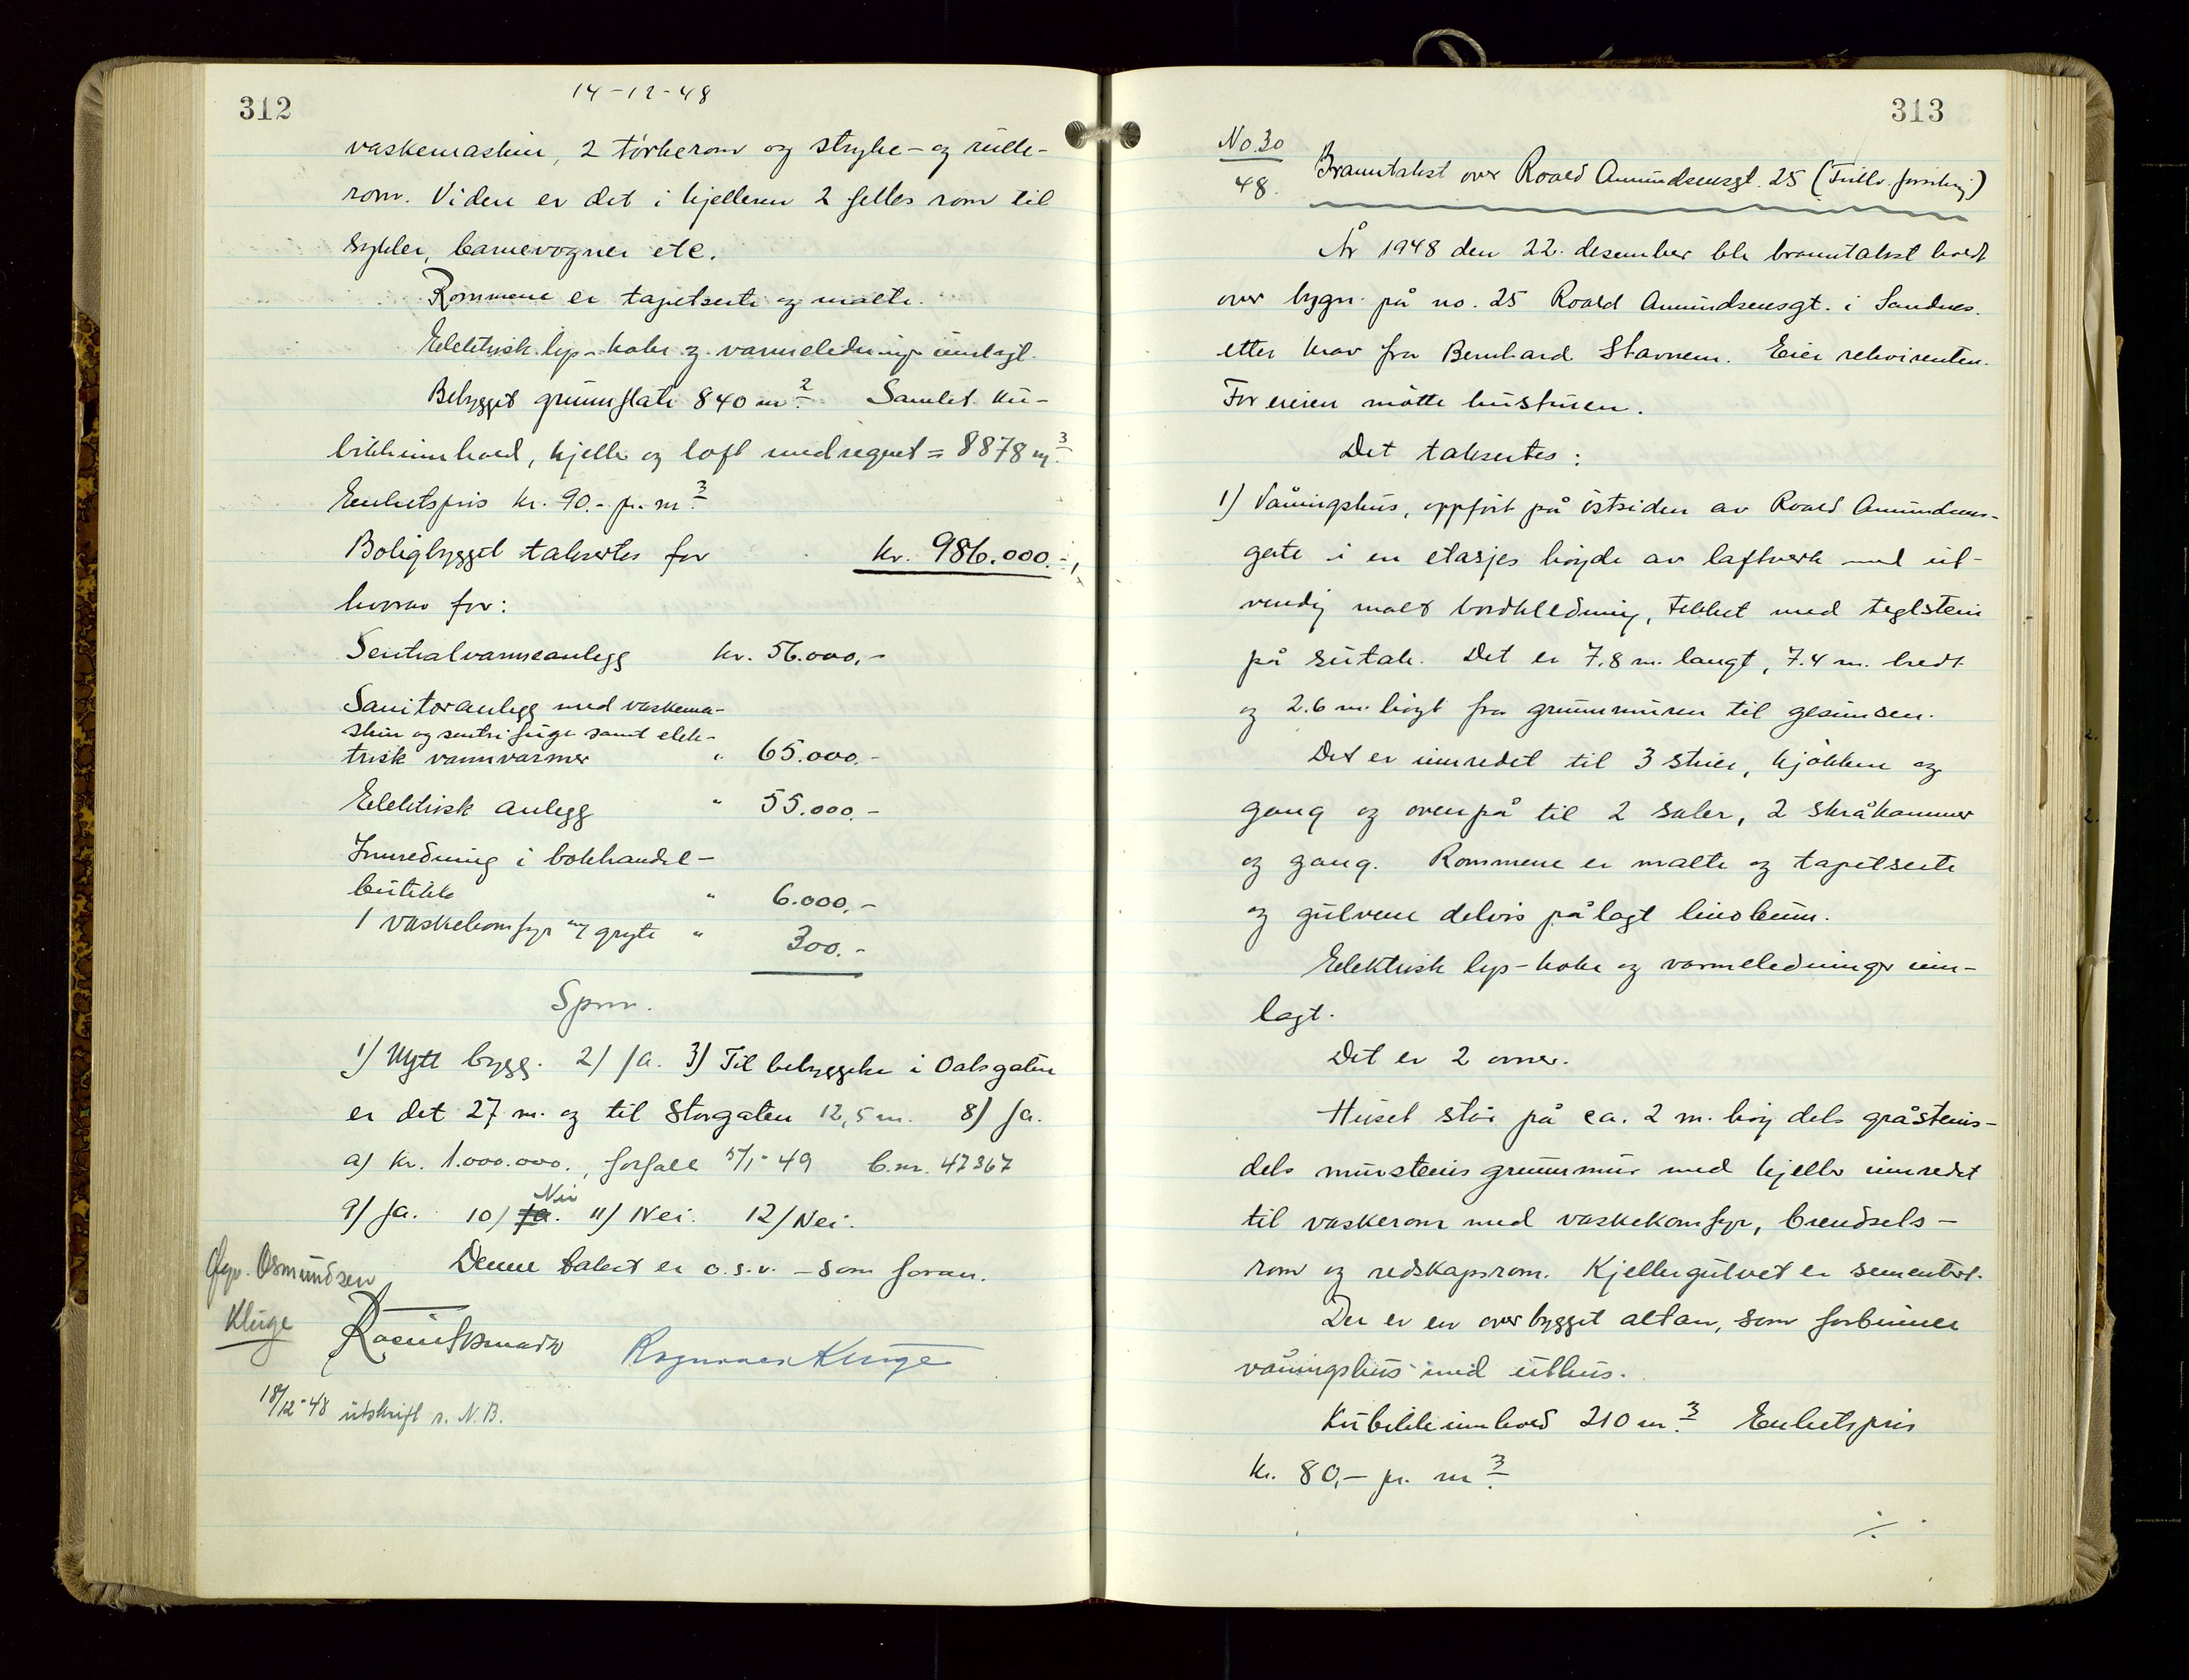 312
14-12-48
vaskemaskin, 2 tørkerom og stryke- og rulle-
rom. Videre er det i kjelleren 2 felles rom til
sykler, barnevogner etc.
Rommene er tapetserte og malte.
Elektrisk lys- koke og varmeledninger innlagt.
Bebygget grunnflate 840 m². Samlet ku-
bikkinnhold, kjeller og loft medregnet = 8878 m³.
Enhetspris kr. 90.- pr. m³.
Boligbygget takseres for kr. 986.000.-,
hvorav for:
Sentralvarmeanlegg kr. 56.000,-
Sanitæranlegg med vaskema-
skin og sentrifuge samt elek-
trisk vannvarmer " 65.000.-
Elektrisk anlegg " 55.000.-
Innredning i bokhandel-
butikk " 6.000,-
1 vaskekomfyr m/ gryte " 300.-
Spm.
1) Nytt bygg. 2) Ja. 3) Til bebyggelse i Oalsgaten
er det 27 m. og til Storgaten 12,5 m. 8) Ja.
a) Kr. 1.000.000., forfall 5/1-49 b.nr. 47367
9) Ja. 10) Ja. Nei 11) Nei. 12) Nei.
Denne takst er o.s.v. - som foran.
Osmundsen
Kluge
Ragnvald Kluge
18/12-48 utskrift s. N.B.
313
No. 30
48.
Branntakst over Roald Amundsensgt. 25 (Frivillig forsikring)
År 1948 den 22. desember ble branntakst holdt
over bygn. på no. 25 Roald Amundsensgt. i Sandnes.
etter krav fra Bernhard Stavnem. Eier rekvirenten.
For eieren møtte hustruen.
Det takseres:
1) Våningshus, oppført på østsiden av Roald Amundsens-
gate i en etasjes høyde av laftverk med ut-
vendig malt bordkledning, tekket med teglstein
på sutak. Det er 7.8 m. langt, 7.4 m. bredt
og 2.6 m. høyt fra grunnmuren til gesimsen.
Det er innredet til 3 stuer, kjøkken og
gang og ovenpå til 2 saler, 2 skråkammer
og gang. Rommene er malte og tapetserte
og gulvene delvis pålagt linoleum.
Elektrisk lys- koke og varmeledninger inn-
lagt.
Det er 2 ovner.
Huset står på ca. 2 m. høy dels gråsteins-
dels mursteins grunnmur med kjeller innredet
til vaskerom med vaskekomfyr, brendsels-
rom og redskapsrom. Kjellergulvet er sementert.
Der er en overbygget altan, som forbinner
våningshus med uthus.
Kubikkinnhold 210 m³. Enhetspris
kr. 80,- pr. m³.
./.